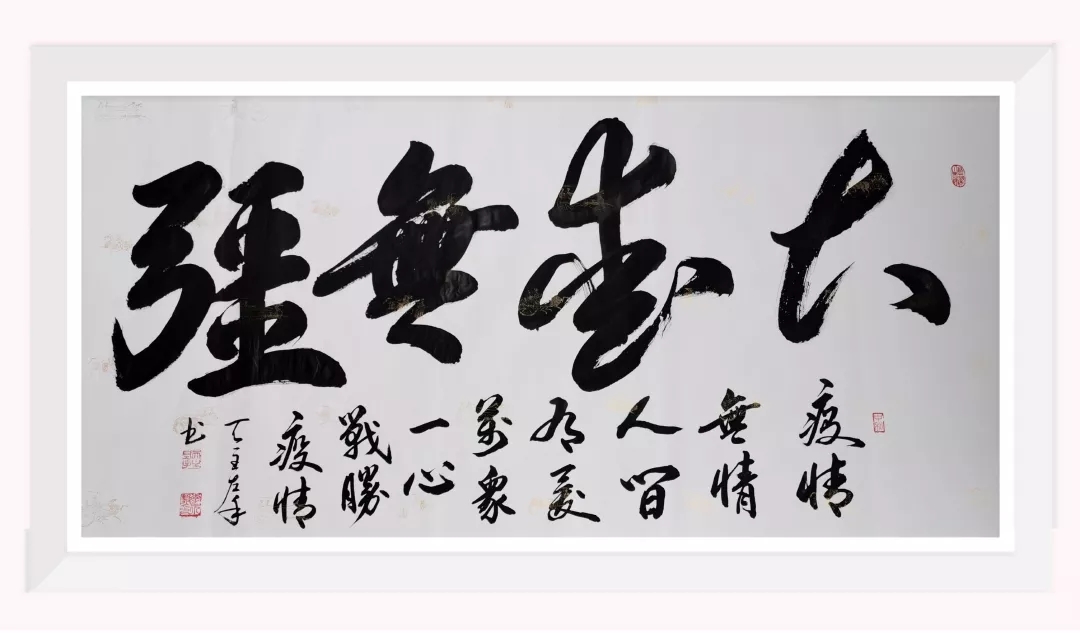 大爱無疆
疫情
無情
人間
有爱
萬衆
一心
戰勝
疫情
丁左手
书